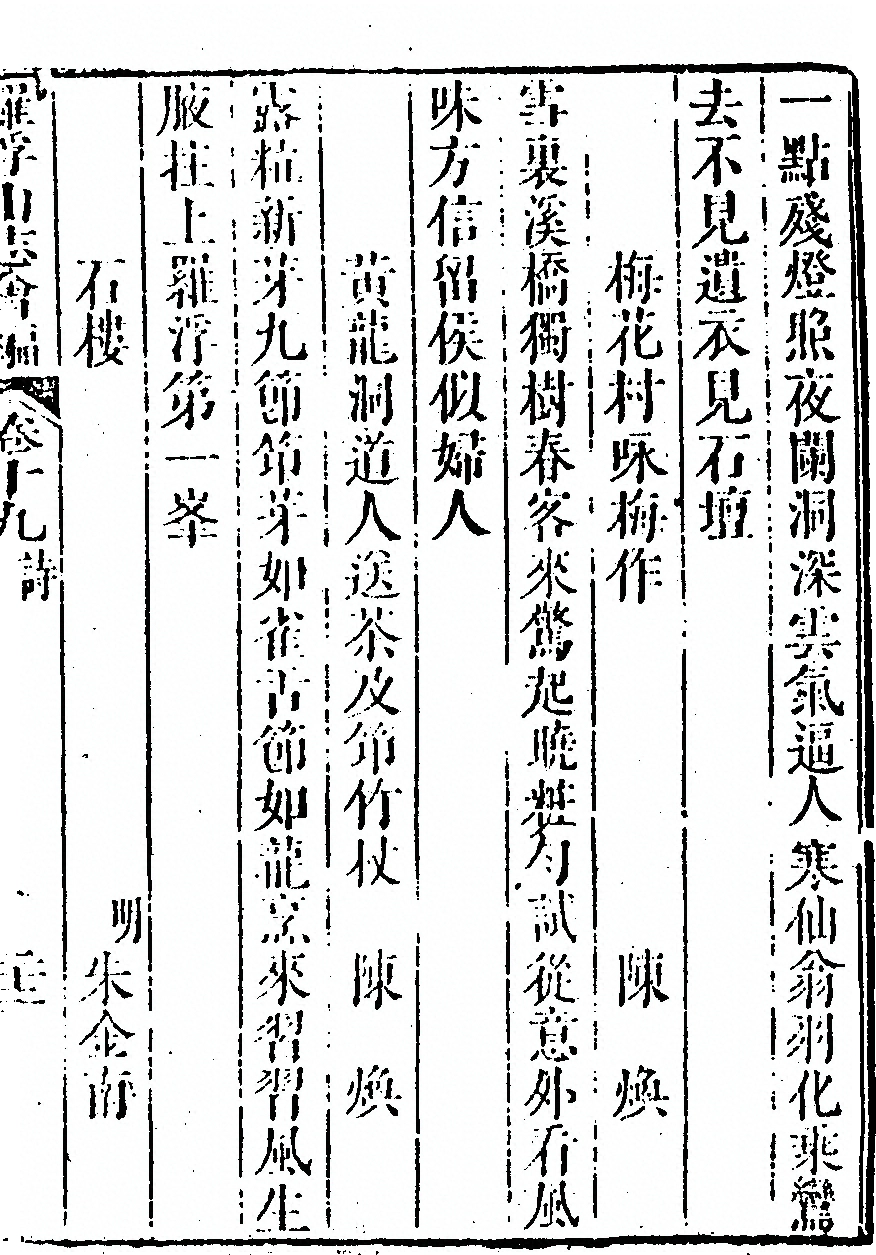 一點殘燈照夜闌洞深雲氣逼人寒仙翁羽化乘鸞
去不見遺衣見石壇
梅花村咏梅作 陳煥
雪裏溪橋獨樹春客來驚起曉粧勻試從意外看風
味方信留侯似婦人
黃龍洞道人送茶及節竹杖 陳煥
露粘新芽九節節芽如雀舌節如龍烹來習習風生
腋拄上羅浮第一峯
石樓 明朱金甫
羅浮山志會編 卷十九 詩